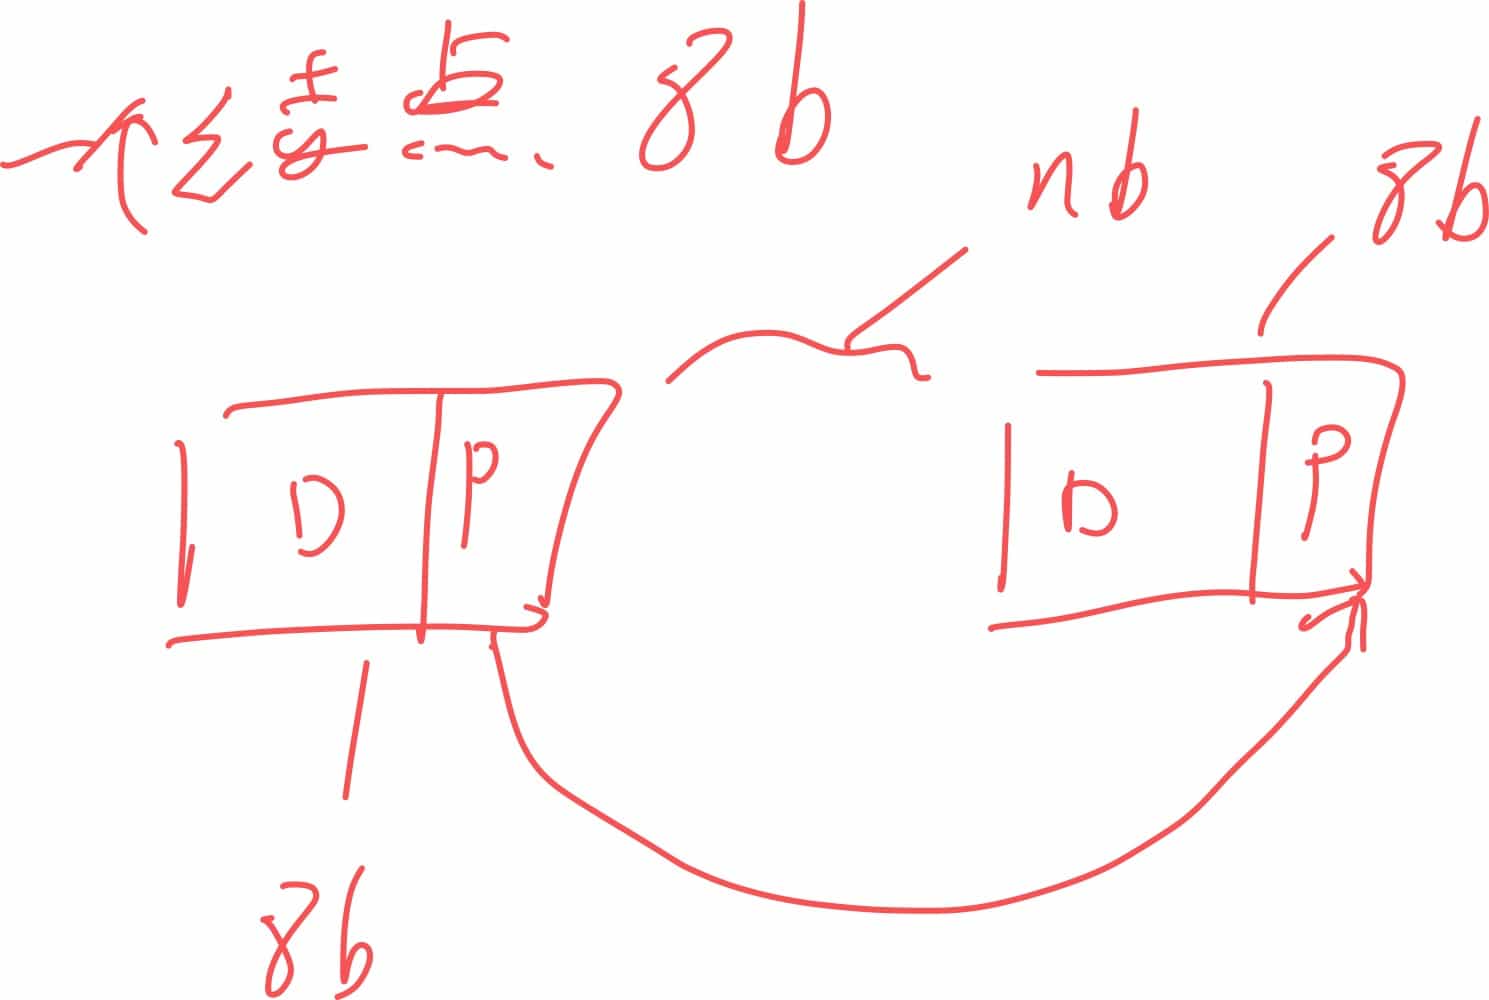 一个结点 8b
nb
8b
D P
D P
8b